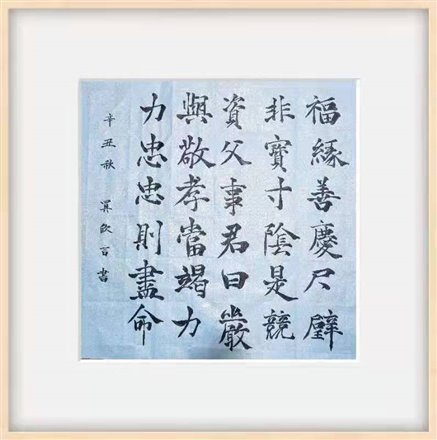 福緣善慶尺璧
非寶寸陰是競
資父事君曰嚴
與敬孝當竭力
力忠忠則盡命
辛丑秋
書